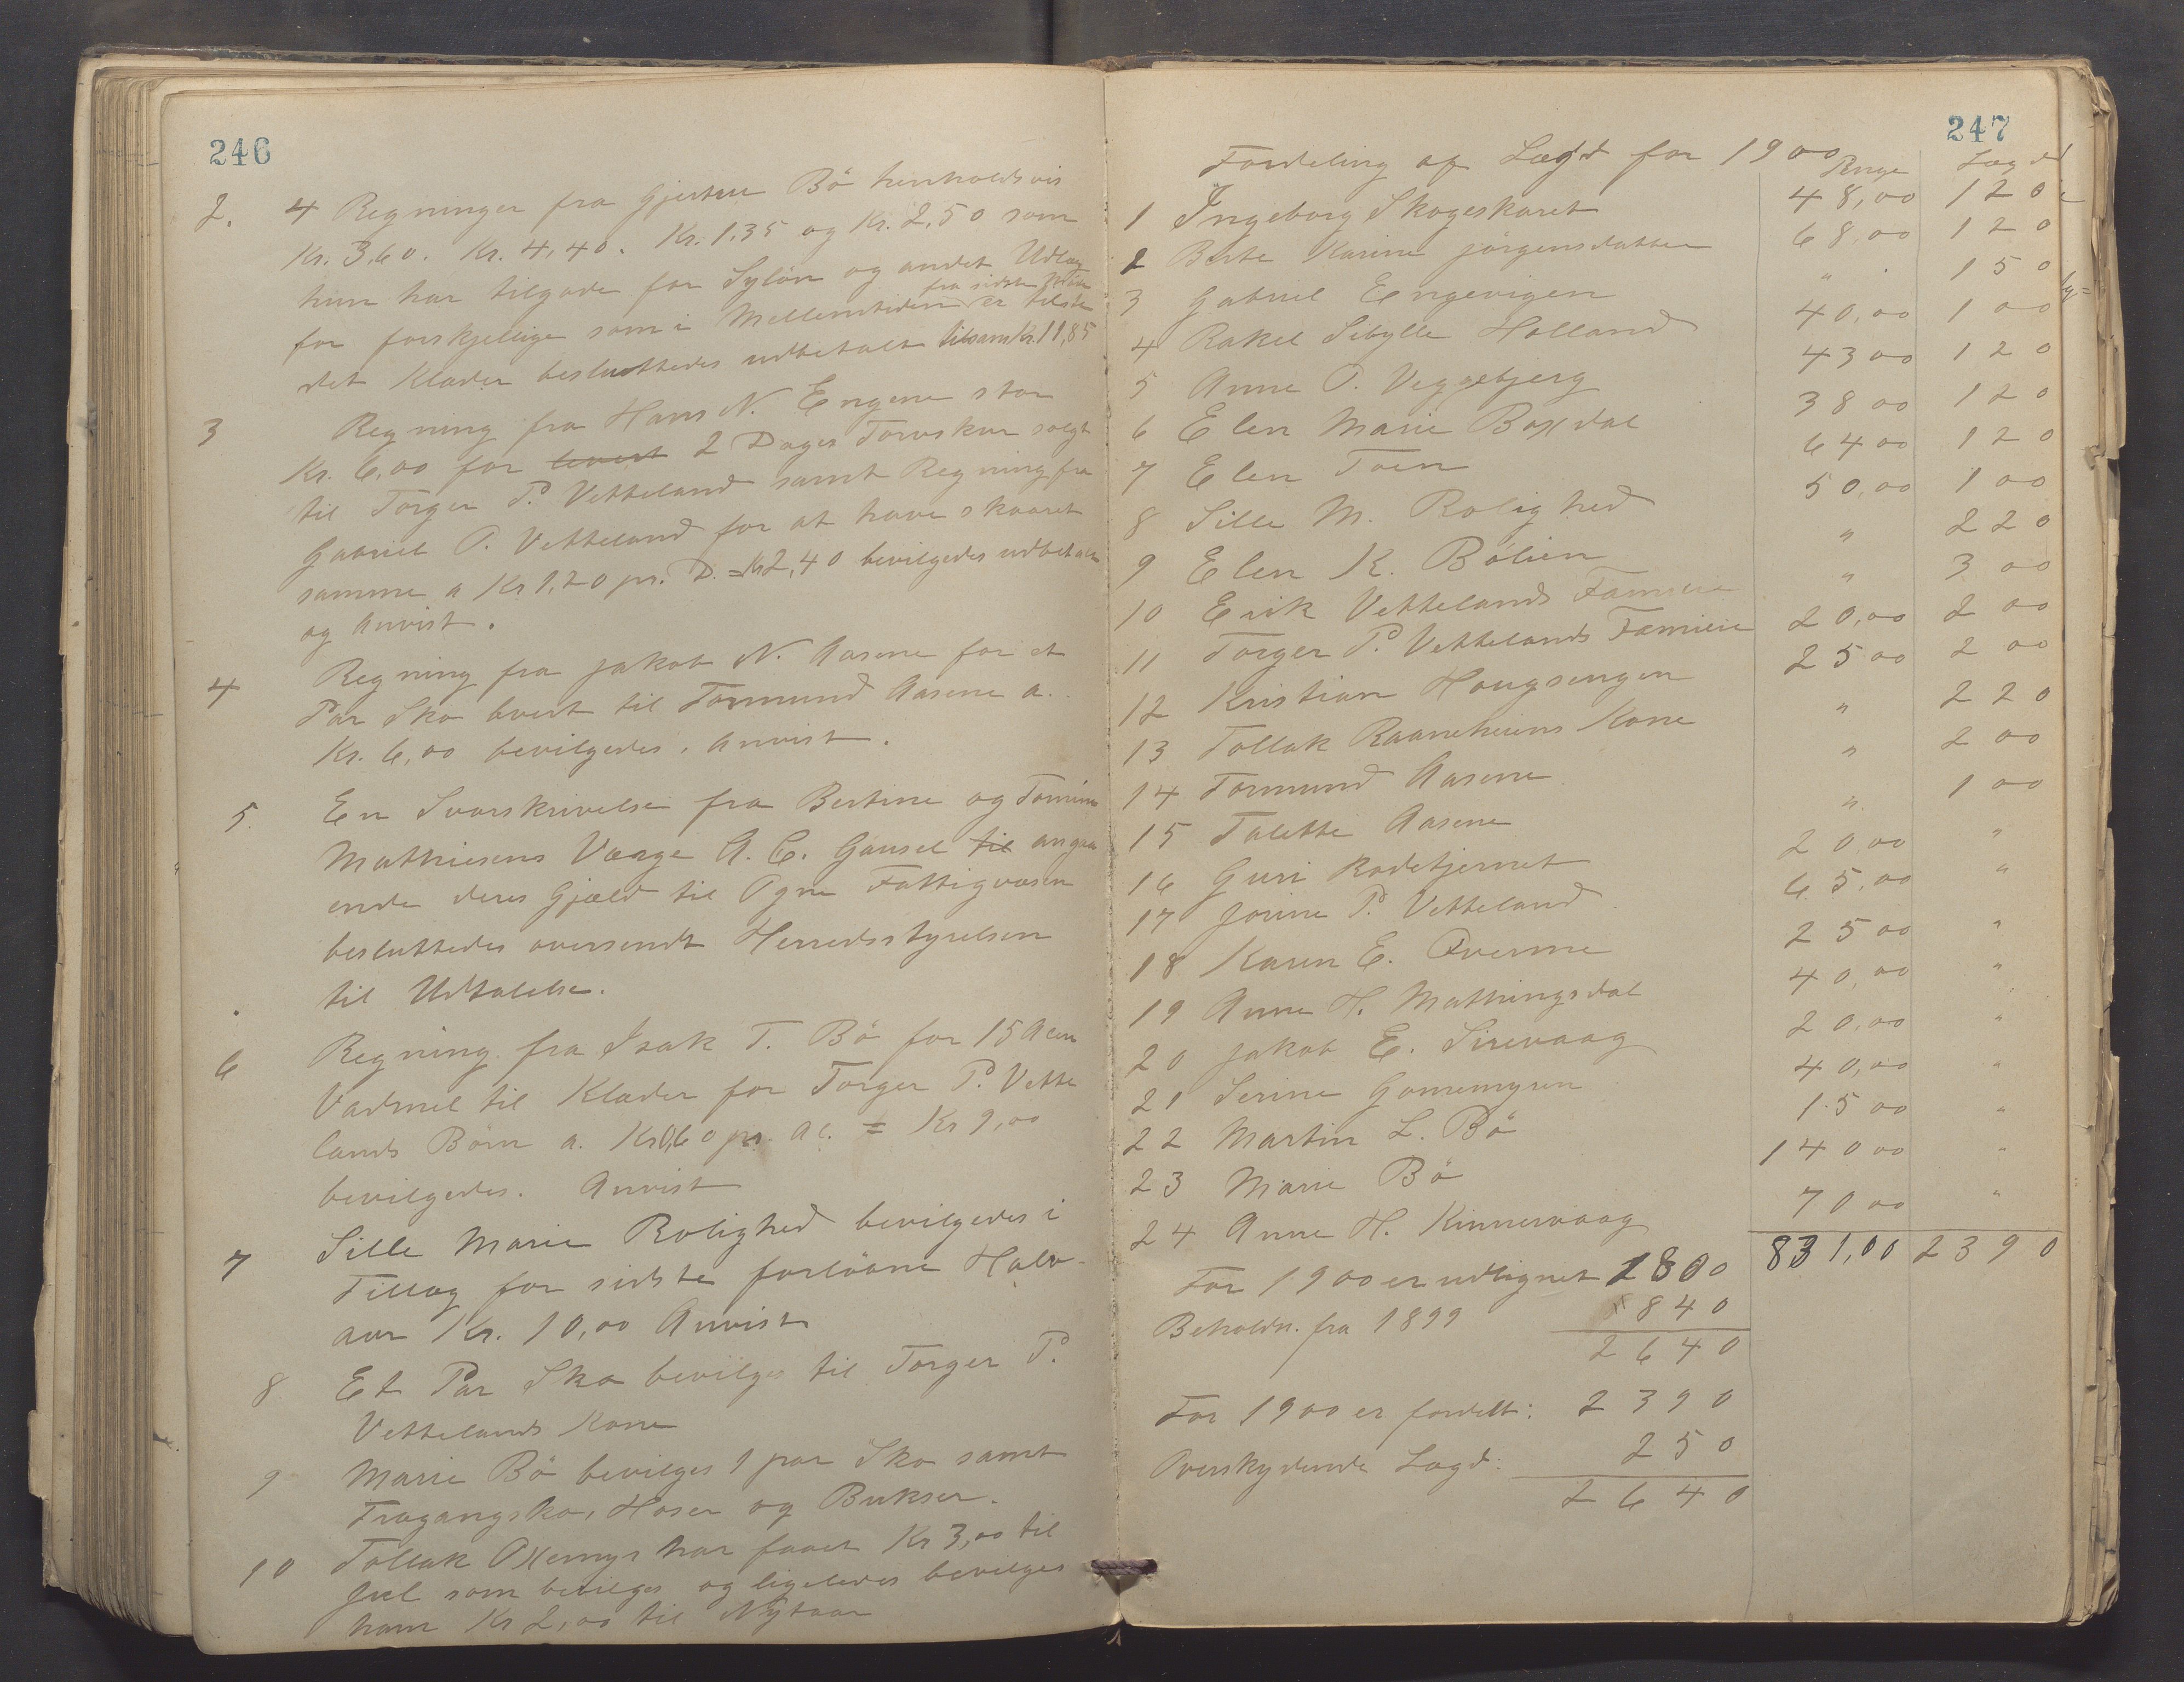 246
2. 4 Regninger fra Gjertine Bö henholdsvis
Kr. 3,60. Kr. 4,40. Kr. 1,35 og Kr. 2,50 som
hun har tilgode for Sylön og andet Udlæg
fra sidste
for forskjellige som i Mellemtiden er tilste
det Klæder besluttedes udbetalt tilsam Kr. 11,85
3 Regning fra Hans N. Engene stor
Kr. 6,00 for levert 2 Dages Torvskur solgt
til Torger P. Vetteland samt Regning fra
Gabriel P. Vetteland for at have skaaret
samme a Kr 1,20 pr. D. = Kr 2,40 bevilgedes udbetalt
og Anvist.
4 Regning fra Jakob N. Aasene for et
Par Sko levert til Tormund Aasene a.
Kr. 6,00 bevilgedes. Anvist.
5. En Svarskrivelse fra Bertine og Tomine
Mathiesens Værge A. C. Gausel til angaa
ende deres Gjæld til Ogne Fattigvæsen
besluttedes oversendt Herredsstyrelsen
til Udtalelse.
6 Regning fra Isak T. Bö for 15 Alen
Vadmel til Klæder for Torger P. Vette
lands Börn a. Kr 0,60 pr. Al. = Kr 9,00
bevilgedes. Anvist
7 Sille Marie Rolighed bevilgedes i
Tillæg for sidste forlöbne Halv-
aar Kr. 10,00 Anvist
8 Et Par Sko bevilges til Torger P.
Vettelands Kone
9 Marie Bö bevilges 1 par Sko samt
Fragangsko, Hoser og Bukser.
10 Tollak Oxemyr har faaet Kr 3,00 til
Jul som bevilges og ligeledes bevilges
ham Kr 2,00 til Nytaar
247
Fordeling af Lægd for 1900
Penge Lægd
1 Ingeborg Skogeskaret 48,00 120
2 Berte Karine Jörgensdatter 68,00 120
3 Gabriel Engevigen " 150
4 Rakel Sibylle Holland 40,00 100
5 Anne P. Veggebjerg 43 00 120
6 Elen Marie Boxdal 38 00 120
7 Elen Toen 64 00 120
8 Sille M. Rolighed 50,00 100
9 Elen K. Bölien " 220
10 Erik Vettelands Familie " 300
11 Torger P. Vettelands Familie 20,00 200
12 Kristian Hougsengen 25 00 200
13 Tollak Raaneheiens Kone " 220
14 Tormund Aasene " 200
15 Talette Aasene " 100
16 Guri Rodetjernet 20,00 "
17 Jorine P. Vetteland 65,00 "
18 Karen E. Tverme 25 00 "
19 Anne H. Mathingsdal 40,00 "
20 Jakob E. Sirevaag 20,00 "
21 Serine Gomemyren 40,00 "
22 Martin L. Bö 15 00 "
23 Marie Bö 140 00 "
24 Anne H. Kinnervaag 70 00 "
831,00 2390
For 1900 er udlignet 1800
Beholdn. fra 1899 " 840
2640
For 1900 er fordelt: 2390
Overskydende Lægd: 250
2640